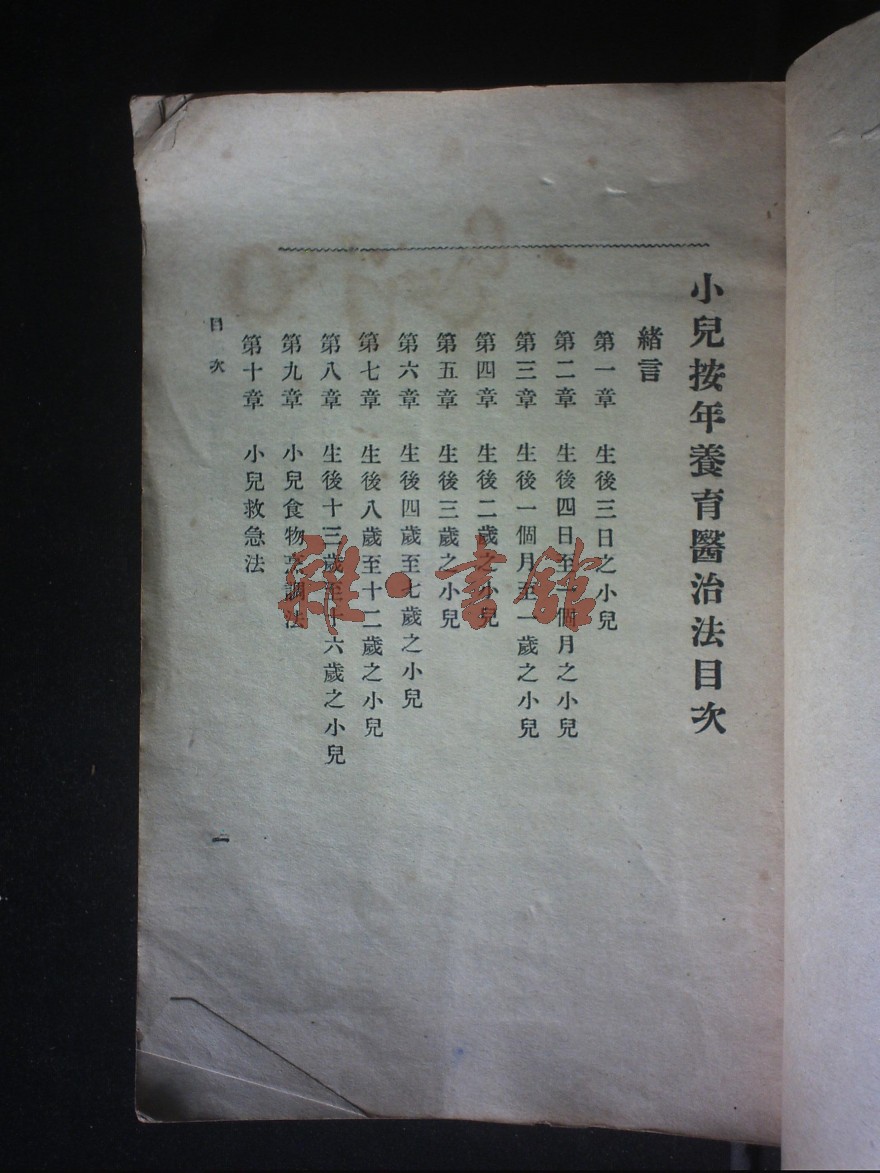 小兒按年養育醫治法目次
緒言
第一章 生後三日之小兒
第二章 生後四日至一個月之小兒
第三章 生後一個月至一歲之小兒
第四章 生後二歲之小兒
第五章 生後三歲之小兒
第六章 生後四歲至七歲之小兒
第七章 生後八歲至十二歲之小兒
第八章 生後十三歲至十六歲之小兒
第九章 小兒食物烹調法
第十章 小兒救急法
目次
一
雜·書館